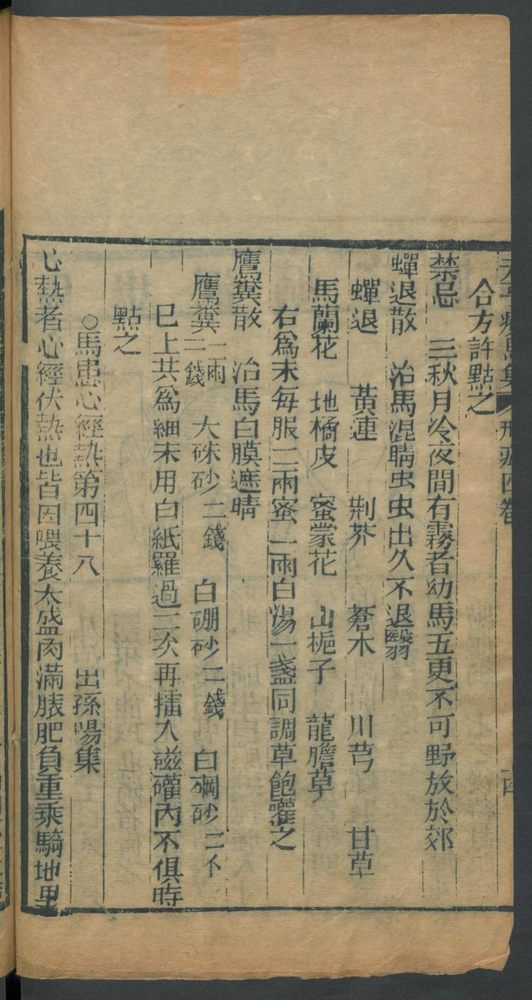 元亨療馬集 四卷
合方許點之
禁忌 三秋月冷夜間有霧者幼馬五更不可野放於郊
蟬退散 治馬混睛虫虫出久不退翳
蟬退 黃連 荆芥 蒼木 川芎 甘草
馬蘭花 地橘皮 蜜蒙花 山梔子 龍膽草
右爲末每服二兩蜜一兩白湯一盞同調草飽灌之
鷹糞散 治馬白膜遮睛
鷹糞一兩二錢 大硃砂二錢 白硼砂二錢 白硇砂二不
已上共爲細末用白紙羅過三次再擂入磁確內不俱時
點之
○馬患心經熱第四十八 出孫陽集
心熱者心經伏熱也皆因喂養太盛肉滿膘肥負重乘騎地里